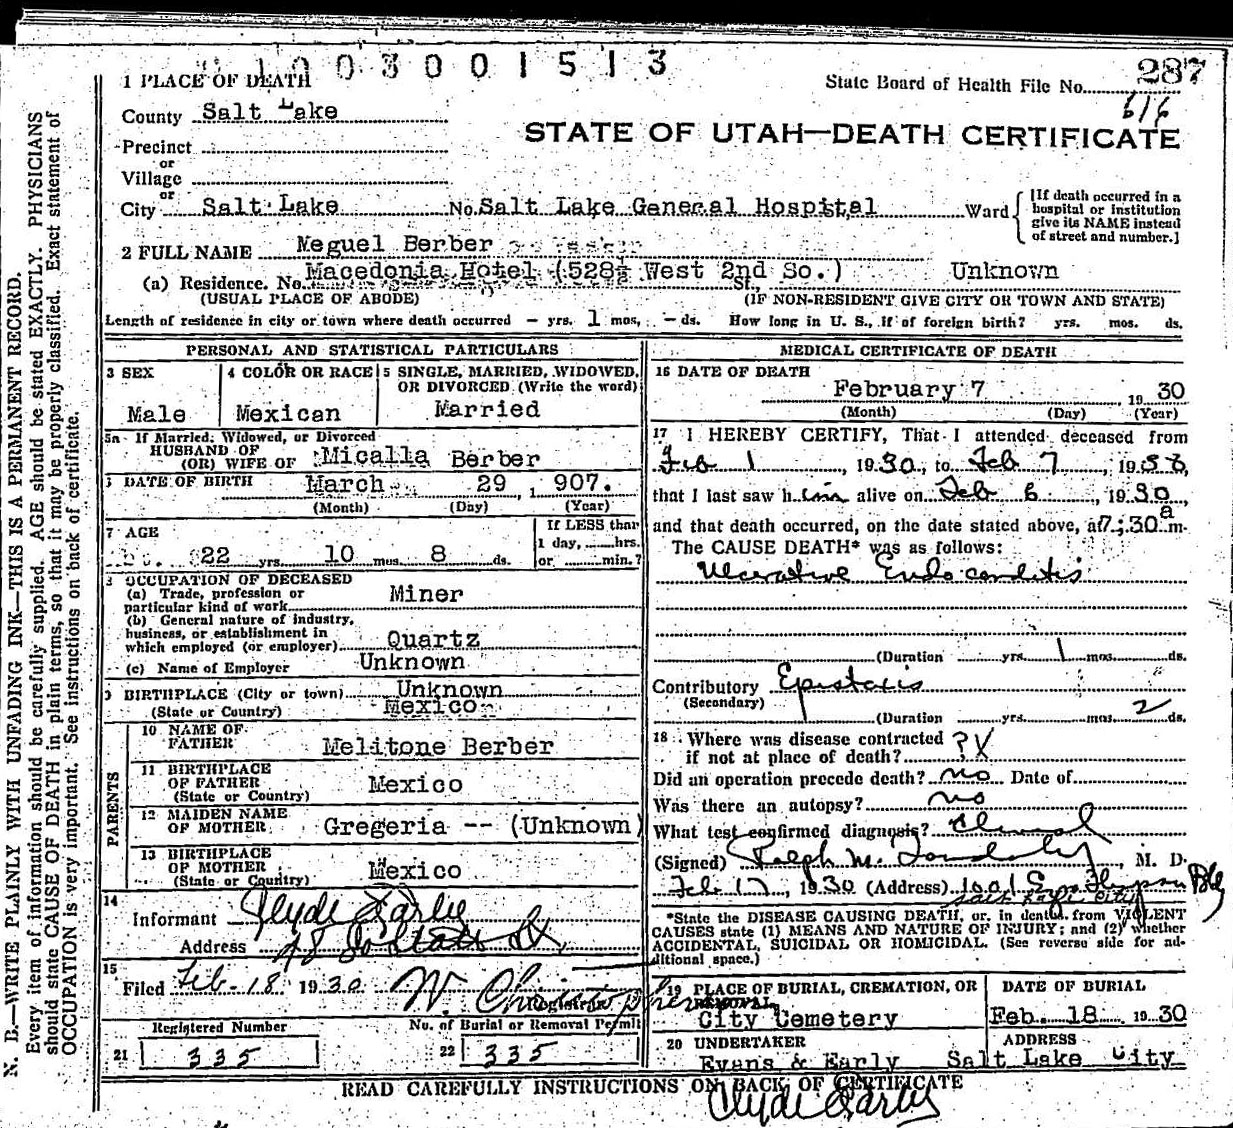 1003001513
1 PLACE OF DEATH
State Board of Health File No. 287
616
County Salt Lake
STATE OF UTAH—DEATH CERTIFICATE
Precinct
or
Village
or
City Salt Lake No. Salt Lake General Hospital Ward
[If death occurred in a
hospital or institution
give its NAME instead
of street and number.]
2 FULL NAME Meguel Berber
(a) Residence. No. Macedonia Hotel (528½ West 2nd So.) St., Unknown
(USUAL PLACE OF ABODE) (IF NON-RESIDENT GIVE CITY OR TOWN AND STATE)
Length of residence in city or town where death occurred - yrs. 1 mos. - ds. How long in U. S., if of foreign birth? yrs. mos. ds.
PERSONAL AND STATISTICAL PARTICULARS
3 SEX
Male
4 COLOR OR RACE
Mexican
5 SINGLE, MARRIED, WIDOWED,
OR DIVORCED (Write the word)
Married
5a If Married, Widowed, or Divorced
HUSBAND OF
(OR) WIFE OF Micalla Berber
DATE OF BIRTH March 29 1907.
(Month) (Day) (Year)
7 AGE
22 yrs. 10 mos. 8 ds.
If LESS than
1 day, hrs.
or min.?
OCCUPATION OF DECEASED
(a) Trade, profession or
particular kind of work Miner
(b) General nature of industry,
business, or establishment in
which employed (or employer) Quartz
(c) Name of Employer Unknown
BIRTHPLACE (City or town) Unknown
(State or Country) Mexico
PARENTS
10 NAME OF
FATHER Melitone Berber
11 BIRTHPLACE
OF FATHER Mexico
(State or Country)
12 MAIDEN NAME
OF MOTHER Gregeria -- (Unknown)
13 BIRTHPLACE
OF MOTHER Mexico
(State or Country)
14
Informant Clyde Early
Address 48 So State St.
15
Filed Feb. 18 1930 W. Christopherson
Registrar
Registered Number No. of Burial or Removal Permit
21 335 22 335
MEDICAL CERTIFICATE OF DEATH
16 DATE OF DEATH
February 7 1930
(Month) (Day) (Year)
17 I HEREBY CERTIFY, That I attended deceased from
Feb 1, 1930, to Feb 7, 1930,
that I last saw him alive on Feb 6, 1930,
and that death occurred, on the date stated above, at 7:30 a m.
The CAUSE DEATH* was as follows:
Ulcerative Endocarditis
(Duration yrs. 1 mos. ds.
Contributory Epistaxis
(Secondary)
(Duration yrs. mos. 2 ds.
18 Where was disease contracted
if not at place of death? ?X
Did an operation precede death? no Date of
Was there an autopsy? no
What test confirmed diagnosis? Clinical
(Signed) Ralph M. , M. D.
Feb 17, 1930 (Address) Bldg
Salt Lake City
*State the DISEASE CAUSING DEATH, or, in deaths from VIOLENT
CAUSES state (1) MEANS AND NATURE OF INJURY; and (2) whether
ACCIDENTAL, SUICIDAL OR HOMICIDAL. (See reverse side for ad-
ditional space.)
19 PLACE OF BURIAL, CREMATION, OR
REMOVAL
City Cemetery
DATE OF BURIAL
Feb. 18 1930
20 UNDERTAKER ADDRESS
Evans & Early Salt Lake City
READ CAREFULLY INSTRUCTIONS ON BACK OF CERTIFICATE
Clyde Early
N. B.—WRITE PLAINLY WITH UNFADING INK—THIS IS A PERMANENT RECORD.
Every item of information should be carefully supplied. AGE should be stated EXACTLY. PHYSICIANS
should state CAUSE OF DEATH in plain terms, so that it may be properly classified. Exact statement of
OCCUPATION is very important. See instructions on back of certificate.